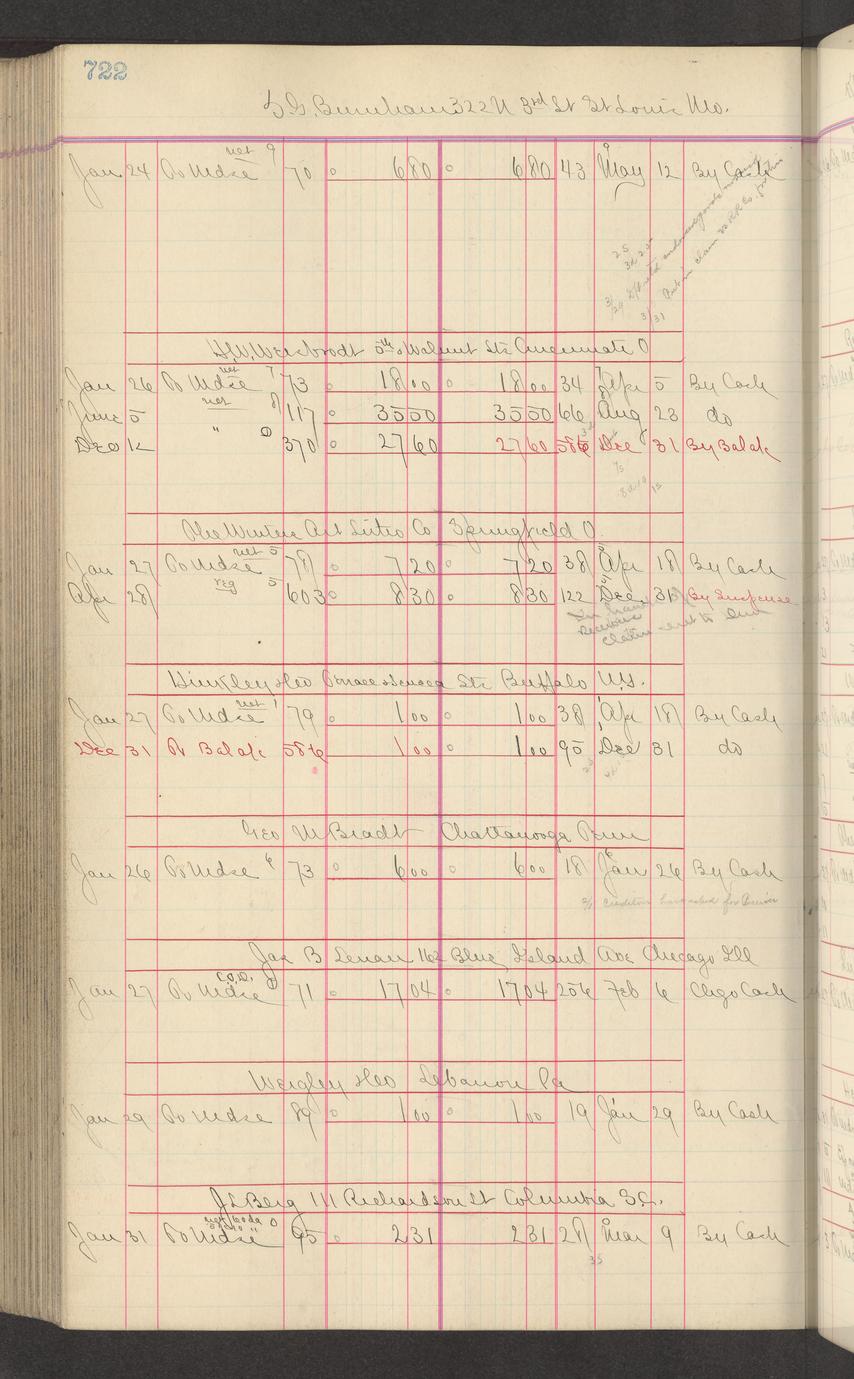 722
Burnham 322 N 3rd St St Louis Mo.
net 9
Jan 24 To Mdse 70 6 80 6 80 43 May 12 By Cash
25
3/24
3/31 Put in claim RR Co. for this
5th & Walnut Sts Cincinnati O
net 7
Jan 26 To Mdse 73 18 00 18 00 34 Apr 5 By Cash
June 5 net 8 117 35 50 35 50 66 Aug 23 do
Dec 12 " 370 27 60 27 60 586 Dec 31 By Balance
The Winters Art Litho Co Springfield O.
net 5
Jan 27 To Mdse 78 7 20 7 20 38 Apr 18 By Cash
Apr 28 reg 5 603 8 30 8 30 122 Dec 31 By Suspense
In hands
Receivers
Claim sent to
Hinkley Geo Terrace & Seneca Sts Buffalo N.Y.
net 1
Jan 27 To Mdse 79 1 00 1 00 38 Apr 18 By Cash
Dec 31 To Balance 586 1 00 1 00 95 Dec 31 do
Geo M Bradt Chattanooga Tenn
Jan 26 To Mdse 6 73 6 00 6 00 18 Jan 26 By Cash
Creditors have asked for Receiver
Jas B 162 Blue Island Ave Chicago Ill
C.O.D.
Jan 27 To Mdse 71 17 04 17 04 256 Feb 6 Chgo Cash
Weigley Geo Lebanon Pa
Jan 29 To Mdse 89 1 00 1 00 19 Jan 29 By Cash
J L Berg 111 Richardson St Columbia S.C.
net 60 da 0
Jan 31 To Mdse 95 2 31 2 31 28 Mar 9 By Cash
35